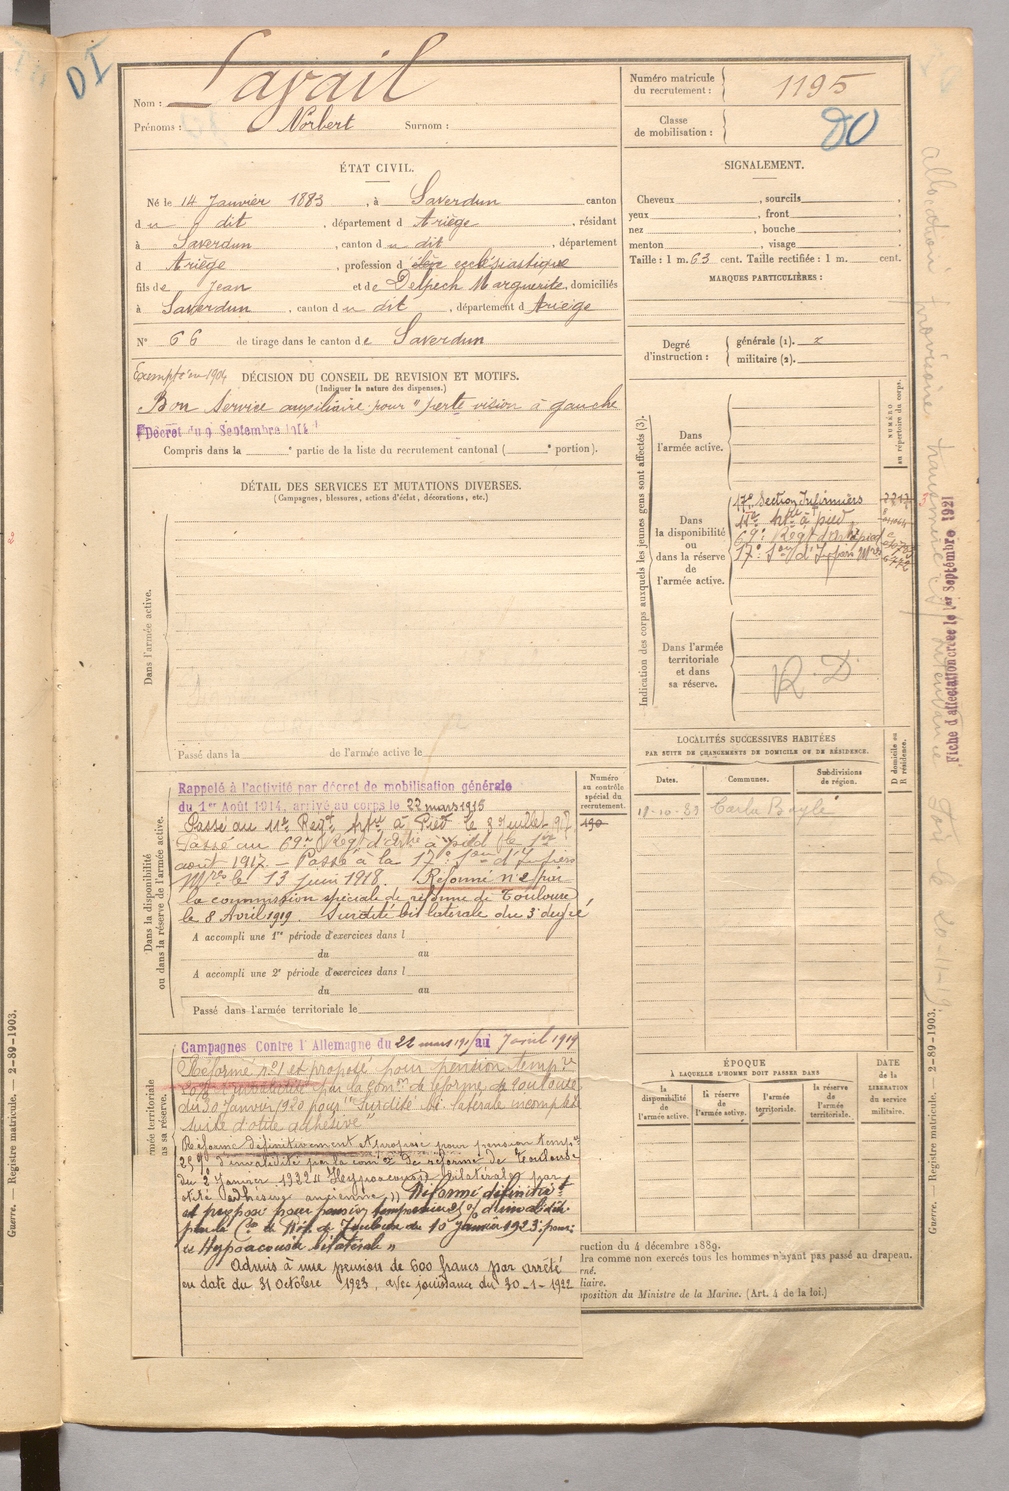 DI
Nom : Lavail
Prénoms : Norbert Surnom :
Numéro matricule du recrutement : 1195
Classe de mobilisation :
ÉTAT CIVIL.
Né le 14 Janvier 1883, à Saverdun canton
du dit, département d Ariège, résidant
à Saverdun, canton du dit, département
d Ariège, profession d élève ecclésiastique
fils de Jean et de Delpech Marguerite, domiciliés
à Saverdun, canton du dit, département d Ariège
N° 66 de tirage dans le canton de Saverdun
SIGNALEMENT.
Cheveux , sourcils ,
yeux , front ,
nez , bouche ,
menton , visage
Taille : 1 m. 63 cent. Taille rectifiée : 1 m. cent.
MARQUES PARTICULIÈRES :
Degré d'instruction : générale (1).
militaire (2).
Exempté en 1904 DÉCISION DU CONSEIL DE REVISION ET MOTIFS.
(Indiquer la nature des dispenses.)
Bon Service auxiliaire pour "perte vision à gauche
Décret du 9 Septembre 1914
Compris dans la e partie de la liste du recrutement cantonal ( e portion).
DÉTAIL DES SERVICES ET MUTATIONS DIVERSES.
(Campagnes, blessures, actions d'éclat, décorations, etc.)
Dans l'armée active.
Passé dans la de l'armée active le
Indication des corps auxquels les jeunes gens sont affectés (3).
NUMÉRO au répertoire du corps.
Dans l'armée active.
Dans la disponibilité ou dans la réserve de l'armée active.
17e Section Infirmiers
11e Artie à pied
69e Régt d'Artie à pied
17e Son d'Infirm Mres
Dans l'armée territoriale et dans sa réserve.
R.D
LOCALITÉS SUCCESSIVES HABITÉES
PAR SUITE DE CHANGEMENTS DE DOMICILE OU DE RÉSIDENCE.
Dates. Communes. Subdivisions de région. D domicile ou R résidence.
Carla Bayle
Dans la disponibilité ou dans la réserve de l'armée active.
Numéro au contrôle spécial du recrutement.
190
Rappelé à l'activité par décret de mobilisation générale
du 1er Août 1914, arrivé au corps le 22 mars 1915
Passé au 11e Regt Artie à Pied le 8 Juillet 917
Passé au 69e Régt d'Artie à pied le 1er
août 1917. – Passé à la 17e Son d'Infiers
Mres le 13 juin 1918. Réformé n° 2 par
la commission spéciale de réforme de Toulouse
le 8 Avril 1919. Surdité bilatérale du 3e degré
A accompli une 1re période d'exercices dans l
du au
A accompli une 2e période d'exercices dans l
du au
Passé dans l'armée territoriale le
Campagnes Contre l'Allemagne du 22 mars 1915 au 7 avril 1919
Réformé n° 1 et proposé pour pension tempre
d'invalidité par la Comon de réforme de Toulouse
du 30 Janvier 1920 pour "Surdité bi-latérale incomplète
suite d'otite adhésive"
Réformé définitivement et proposé pour pension tempre
25 % d'invalidité par la Comon de réforme de Toulouse
du 2 Janvier 1922 "Hypoacousie bilatérale par
otite adhésive ancienne" Réformé définitivt
et proposé pour pension temporaire % d'invalidité
par la Con de Réf. de Toulouse du 10 Janvier 1923 pour:
"Hypoacousie bilatérale"
Admis à une pension de 600 francs par arrêté
en date du 31 Octobre 1923, avec jouissance du 30-1-1922
rmée territoriale
ns sa réserve.
ÉPOQUE
À LAQUELLE L'HOMME DOIT PASSER DANS
DATE de la LIBÉRATION du service militaire.
la disponibilité de l'armée active.
la réserve de l'armée active.
l'armée territoriale.
la réserve de l'armée territoriale.
ruction du 4 décembre 1889.
dra comme non exercés tous les hommes n'ayant pas passé au drapeau.
rné.
liaire.
position du Ministre de la Marine. (Art. 4 de la loi.)
Fiche d'affectation créée le 1er Septembre 1921
Guerre. — Registre matricule. — 2-89-1903.
Guerre. — Registre matricule. — 2-89-1903.